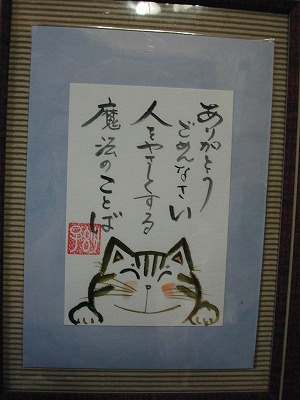 ありがとう
ごめんなさい
人をやさしくする
魔法のことば